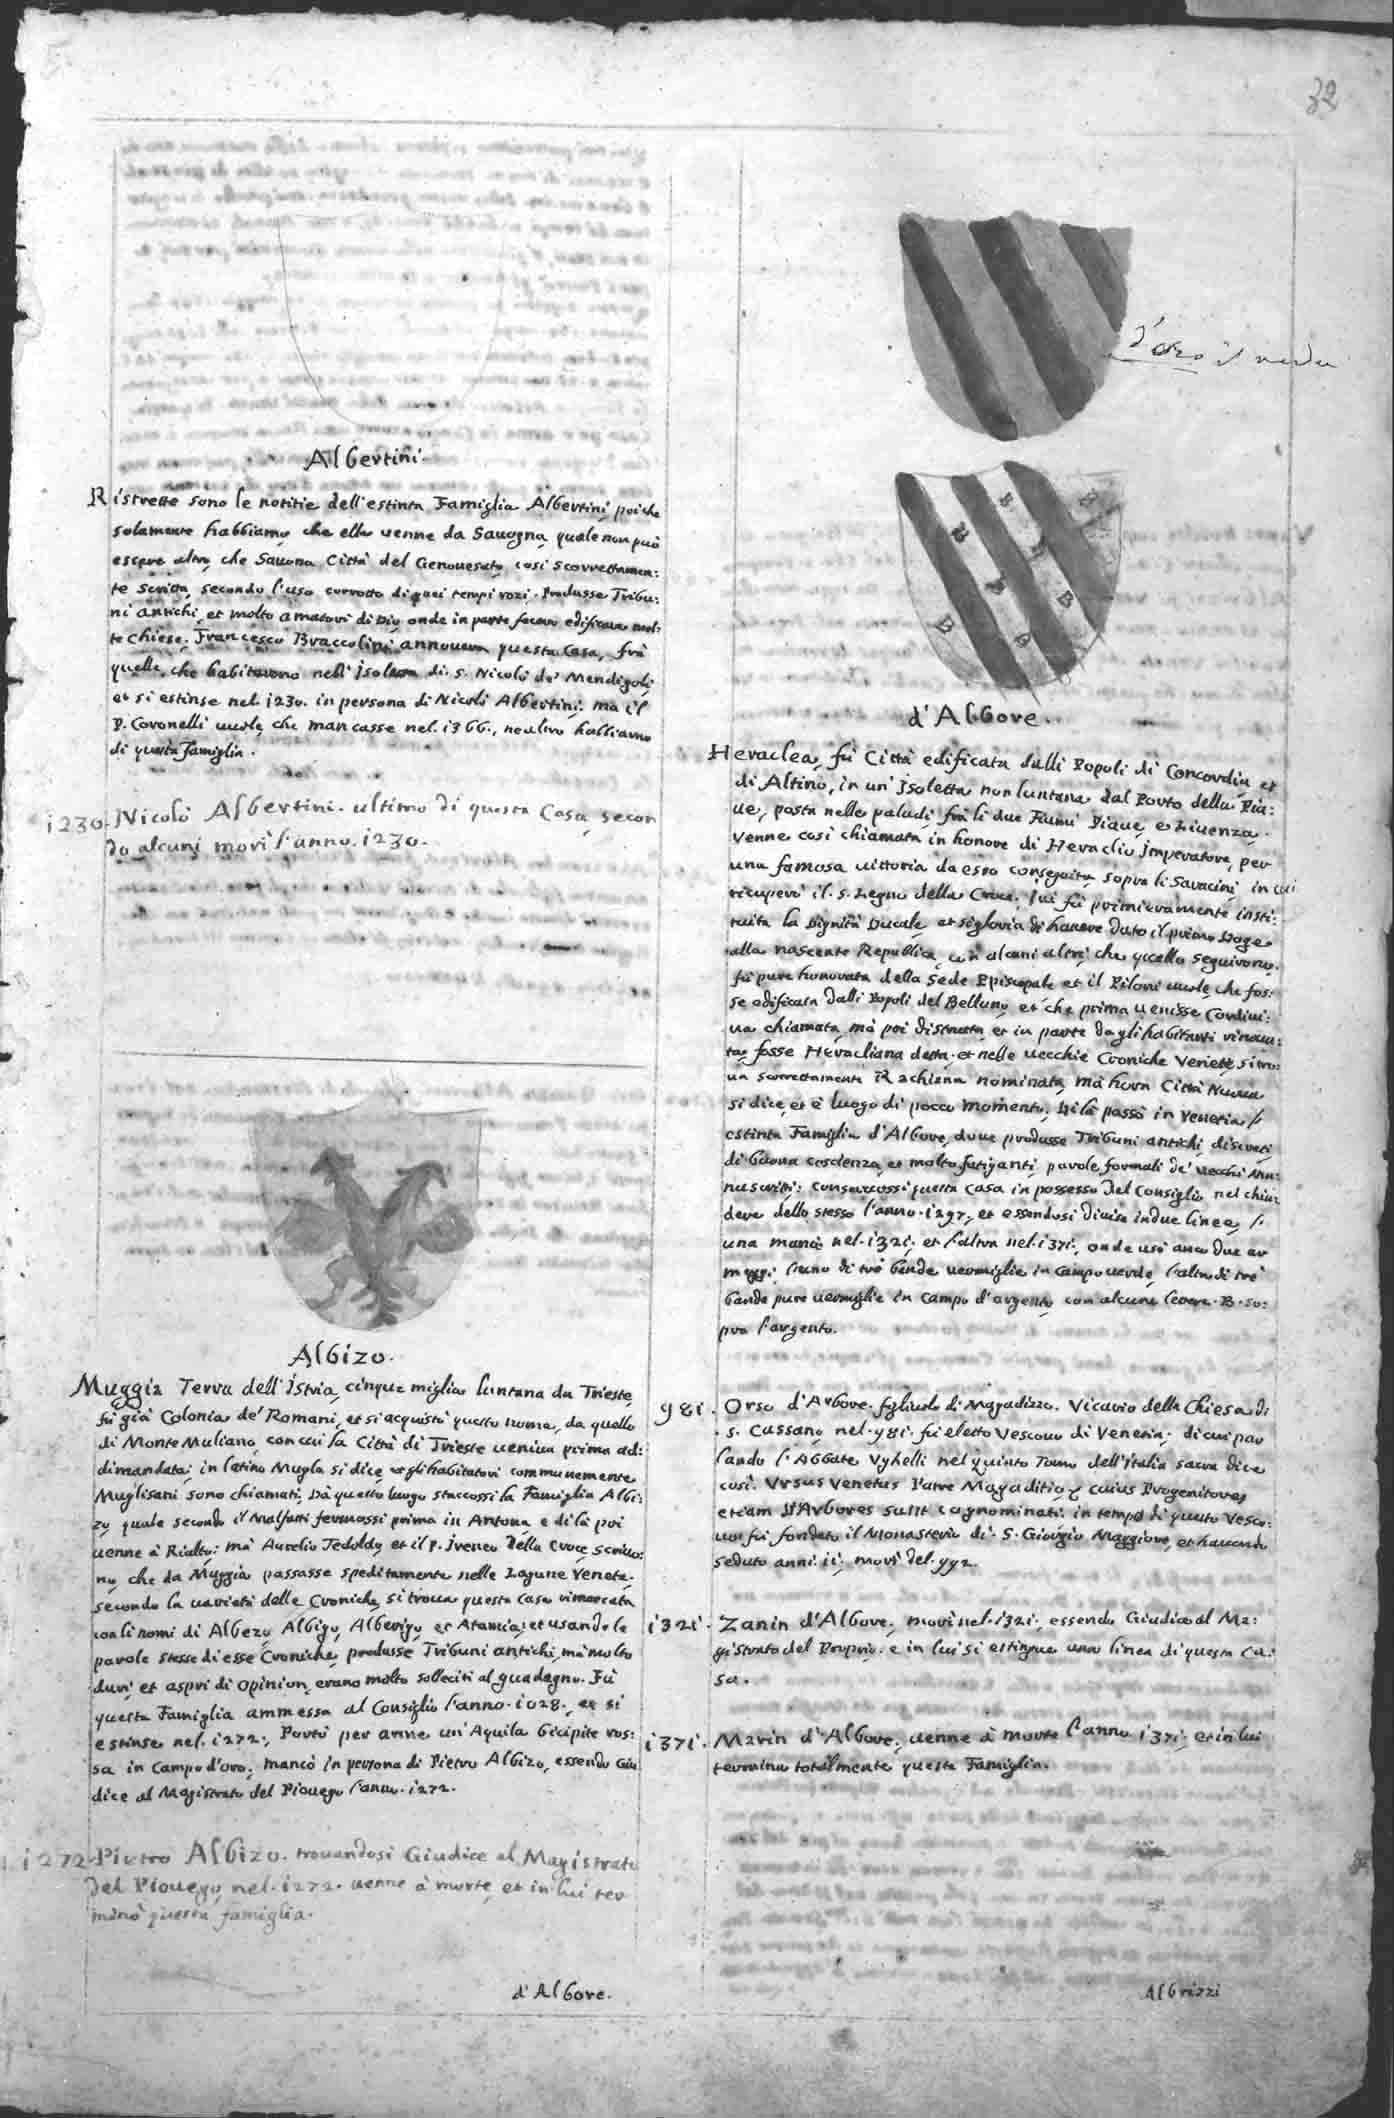 32
Albertini.
Ristrette sono le notitie dell'estinta Famiglia Albertini, poiche
solamente habbiamo che ella uenne da Sauogna, quale non può
essere altro che Sauona Città del Genouesato, così scorrettamen:
te scritta, secondo l'uso corrotto di quei tempi rozi. Produsse Tribu:
ni antichi, et molto amatori di Dio, onde in parte fecero edificare mol:
te chiese. Francesco Braccolini annouera questa Casa, frà
quelle, che habitarono nell'Isola di S. Nicolò de' Mendigoli,
et si estinse nel. 1230. in persona di Nicolò Albertini; ma il
P. Coronelli uuole, che mancasse nel. 1366., ne altro habbiamo
di questa Famiglia.
1230. Nicolò Albertini. ultimo di questa Casa, secon
do alcuni morì l'anno. 1230.
Albizo.
Muggia Terra dell'Istria, cinque miglia luntana da Trieste,
fù già Colonia de' Romani, et si acquistò questo nome, da quello
di Monte Muliano, con cui la Città di Trieste ueniua prima ad:
dimandata; in latino Mugla si dice, et gli habitatori communemente
Muglisani sono chiamati. Dà questo luogo staccossi la Famiglia Albi:
zo, quale secondo il Malfatti fermossi prima in Antona e di là poi
uenne à Rialto; mà Aurelio Tedoldo, et il P. Ireneo della Croce scriuo:
no, che da Muggia passasse speditamente nelle Lagune Venete.
secondo la uarietà delle Croniche, si troua questa casa rimarcata
con li nomi di Albezo, Albigo, Alberigo, et Atamcia; et usando le
parole stesse di esse Croniche, produsse Tribuni antichi, mà molto
duri et aspri di opinion, erano molto solleciti al guadagno. Fù
questa Famiglia ammessa al Consiglio l'anno. 1028., et si
estinse nel. 1272., Portò per arme un'Aquila bicipite ros:
sa in Campo d'oro; mancò in persona di Pietro Albizo, essendo Giu
dice al Magistrato del Piouego l'anno. 1272.
1272. Pietro Albizo. trouandosi Giudice al Magistrato
del Piouego, nel. 1272. uenne à morte, et in lui ter
minò questa famiglia.
d'Albore.
d'oro il
B B B B B B B
d'Albore.
Heraclea, fù Città edificata dalli Popoli di Concordia, et
di Altino, in un'Isoletta non luntana dal Porto della Pia:
ue, posta nelle paludi frà li due Fiumi Piaue, e Liuenza.
Venne così chiamata in honore di Heraclio Imperatore, per
una famosa uittoria da esso conseguita sopra li Saracini, in cui
ricuperò il S. Legno della Croce. Iui fù primieramente insti:
tuita la Dignità Ducale, et si gloria di hauere dato il primo Doge
alla nascente Republica, con alcuni altri, che quello seguirono.
fù pure honorata della sede Episcopale, et il Piloni uuole, che fos:
se edificata dalli Popoli del Belluno, et che prima uenisse Cordini:
na chiamata, mà poi distrutta, et in parte dagli habitanti rinoua:
ta, fosse Heracliana detta. et nelle uecchie Croniche Venete, si tro:
ua scorrettamente Rachiena nominata, mà hora Città Nuoua
si dice, et è luogo di pocco momento. Di là passò in Venetia l'
estinta Famiglia d'Albore, doue produsse Tribuni antichi, discreti,
di buona coscienza, et molto fatiganti, parole formali de' uecchi Ma:
nuscritti: conseruossi questa casa in possesso del Consiglio nel chiu:
dere dello stesso l'anno. 1297, et essendosi diuisa in due linee, l'
una mancò nel. 1321; et l'altra nel. 1371., onde usò anco due ar
meggi, l'uno di trè bande uermiglie in campo uerde, l'altro di trè
bande pure uermiglie in campo d'argento, con alcune lettere. B. so:
pra l'argento.
981. Orso d'Arbore. figliuolo di Magadizzo. Vicario della Chiesa di
S. Cassano, nel. 981. fù eletto Vescouo di Venetia; di cui par
lando l'Abbate Vghelli nel quinto Tomo dell'Italia sacra dice
così. Vrsus Venetus Patre Magaditio, cuius Progenitores
etiam D'Arbores sunt cognominati. in tempo di questo Vesco:
uo fù fondato il Monasterio di S. Giorgio Maggiore, et hauendo
seduto anni. 11. morì del. 992.
1321. Zanin d'Albore. morì nel. 1321. essendo Giudice al Ma:
gistrato del Proprio. e in lui si estingue una linea di questa Ca:
sa.
1371. Marin d'Albore. uenne à morte l'anno 1371. et in lui
termina totalmente questa Famiglia.
Albrizzi